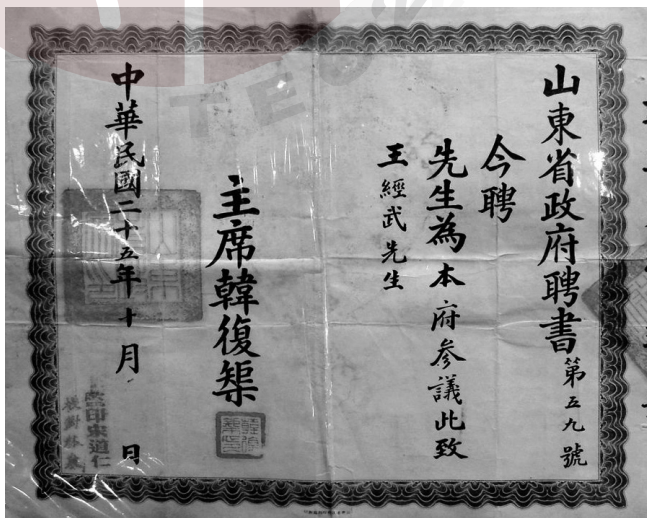 山東省政府聘書第五九號
今聘
先生為本府參議此致
王經武先生
主席韓復榘
中華民國二十五年十月 日